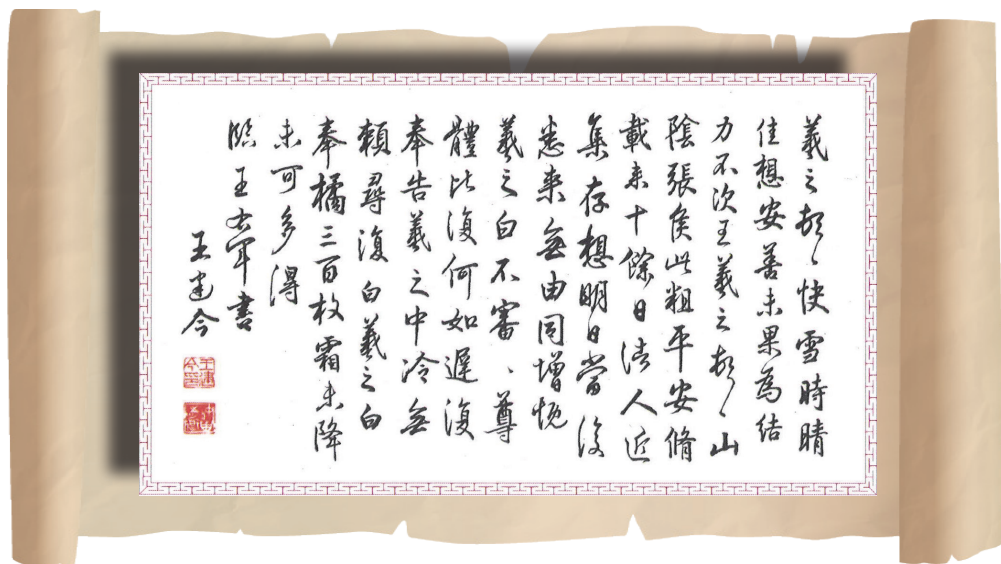 羲之頓〻快雪時晴
佳想安善未果為結
力不次王羲之頓〻山
陰張侯此粗平安脩
載来十餘日諸人近
集存想明日當復
悉来無由同增慨
羲之白不審、尊
體比復何如遲復
奉告羲之中冷無
頼尋復白羲之白
奉橘三百枚霜未降
未可多得
臨王右軍書
王建今